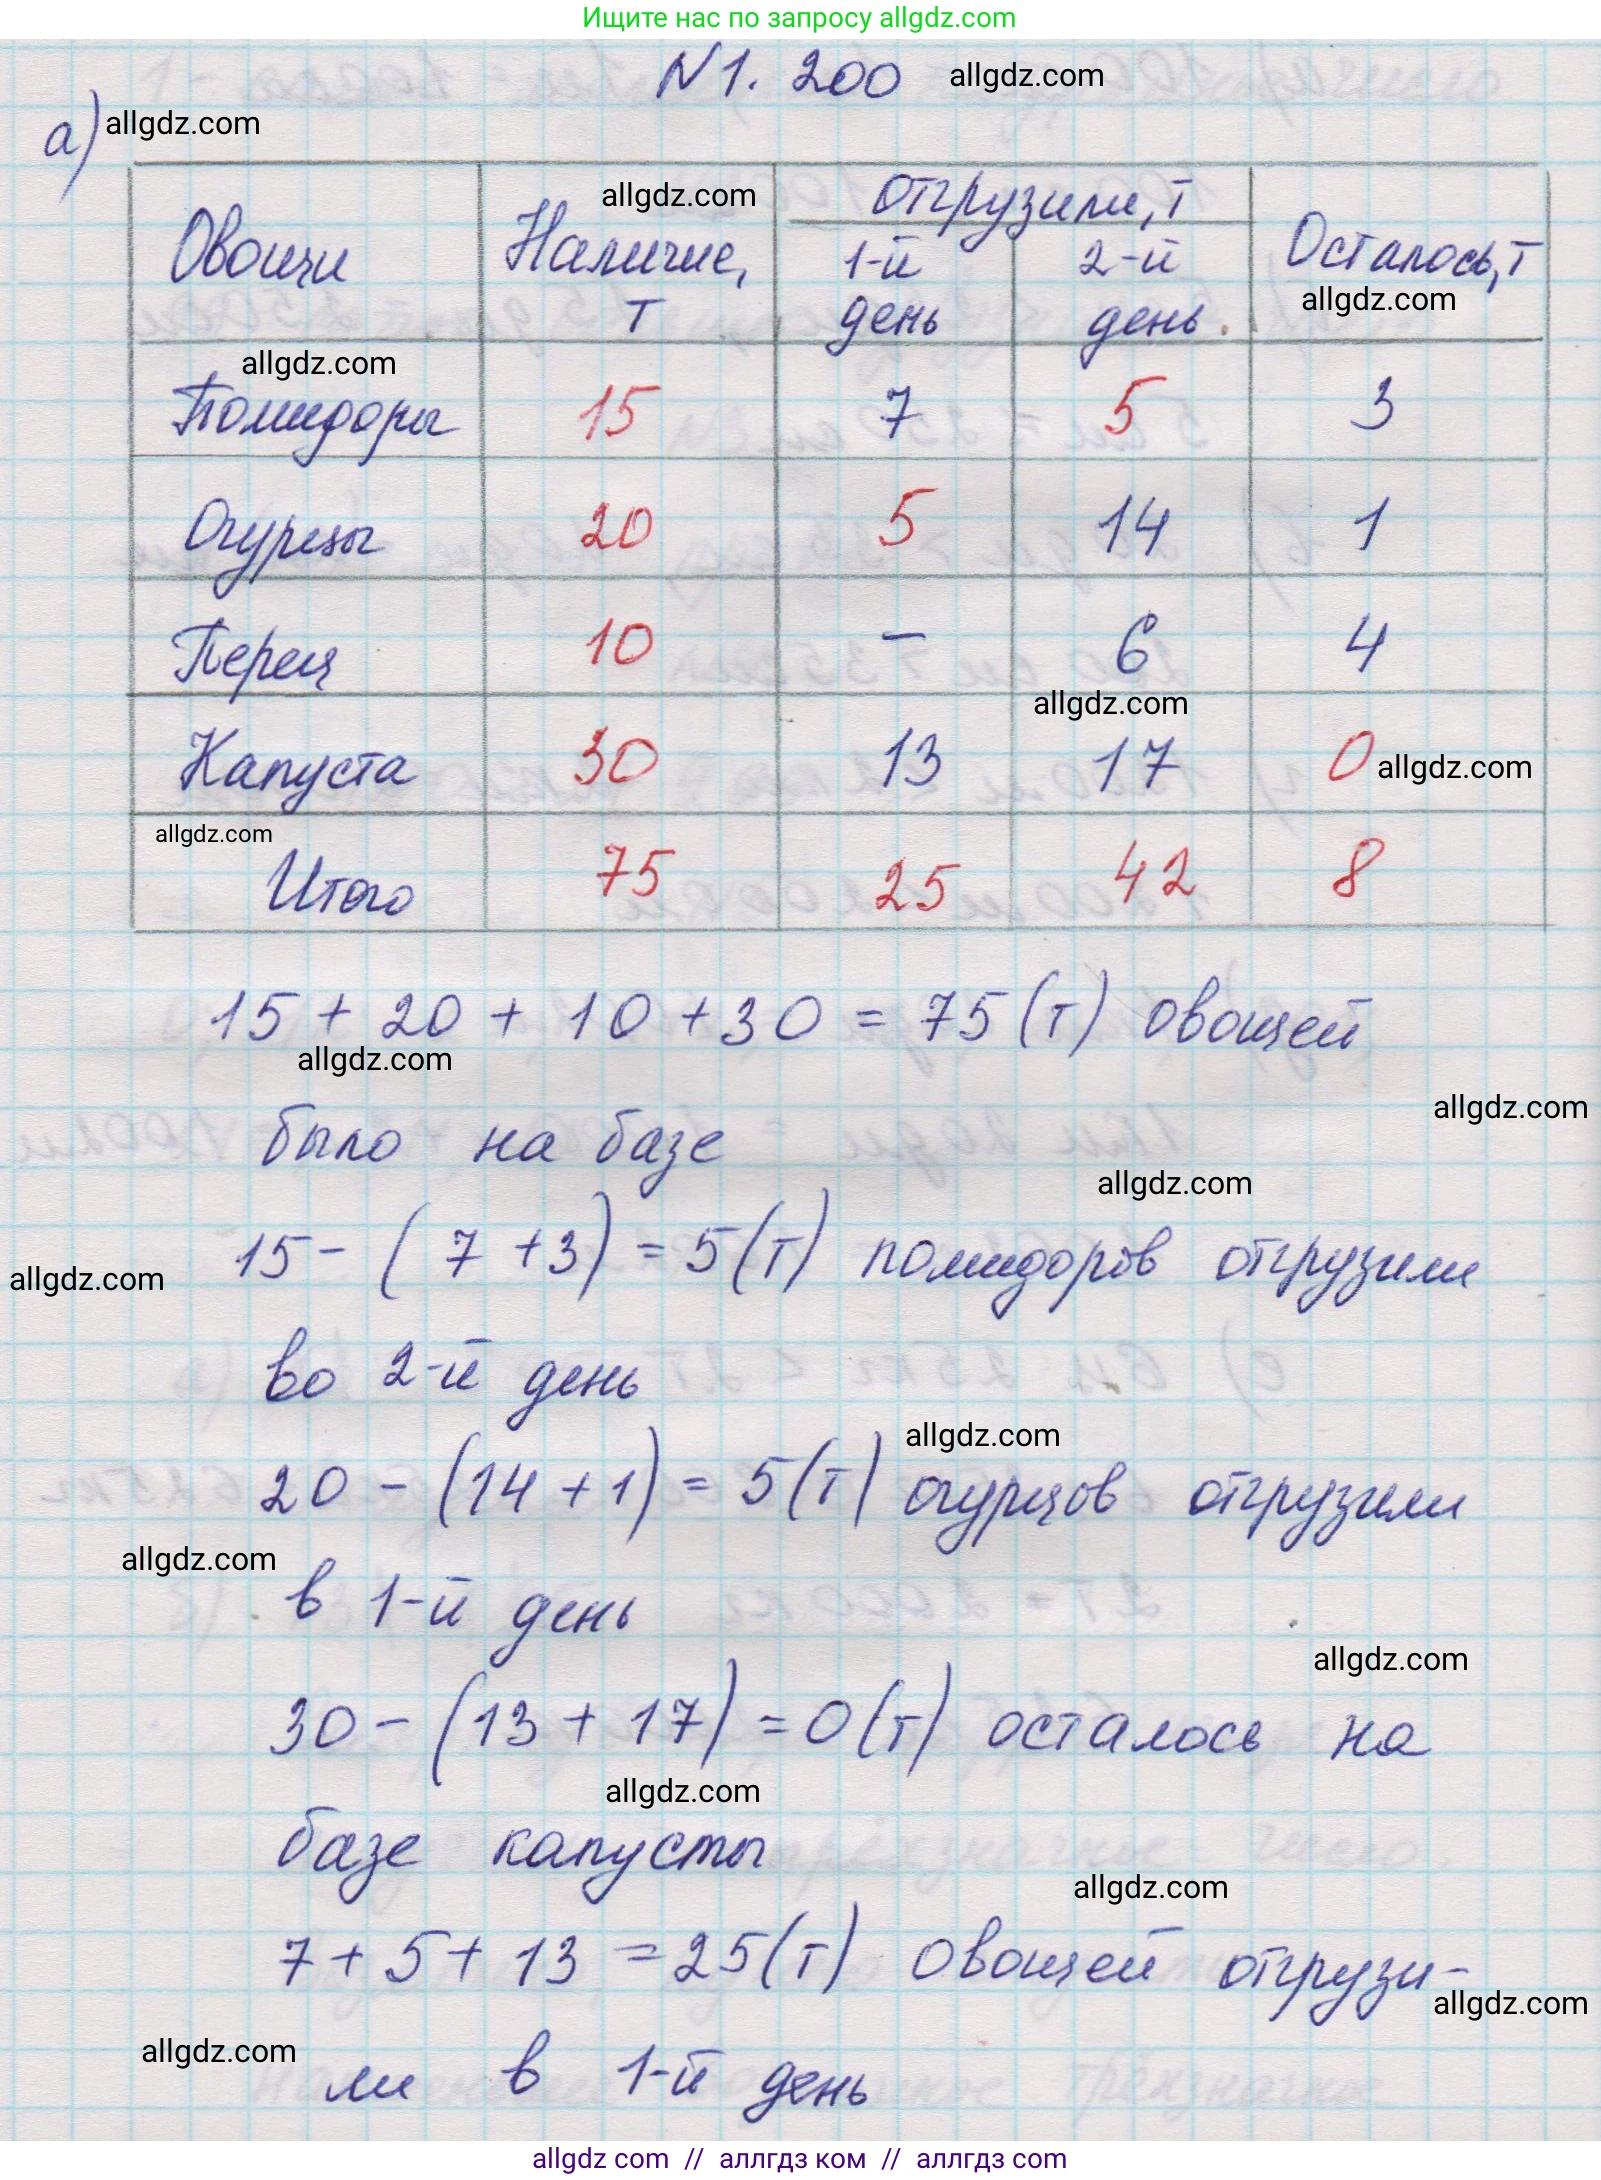 Ищите нас по запросу allgdz.com
N 1. 200 allgdz.com
а) allgdz.com
Овощи Наличие, т allgdz.com Отгрузили, т Осталось, т
1-й день 2-й день allgdz.com
allgdz.com
Помидоры 15 7 5 3
Огурцы 20 5 14 1
Перец 10 – 6 4
allgdz.com
Капуста 30 13 17 0 allgdz.com
allgdz.com
Итого 75 25 42 8
15 + 20 + 10 + 30 = 75 (т) овощей
allgdz.com
allgdz.com
было на базе
allgdz.com
15 – (7 + 3) = 5 (т) помидоров отгрузили
allgdz.com
во 2-й день
allgdz.com
20 – (14 + 1) = 5 (т) огурцов отгрузили
allgdz.com
в 1-й день
allgdz.com
30 – (13 + 17) = 0 (т) осталось на
allgdz.com
базе капусты
allgdz.com
7 + 5 + 13 = 25 (т) овощей отгрузи-
allgdz.com
allgdz.com
ли в 1-й день
allgdz.com // аллгдз ком // аллгдз.com